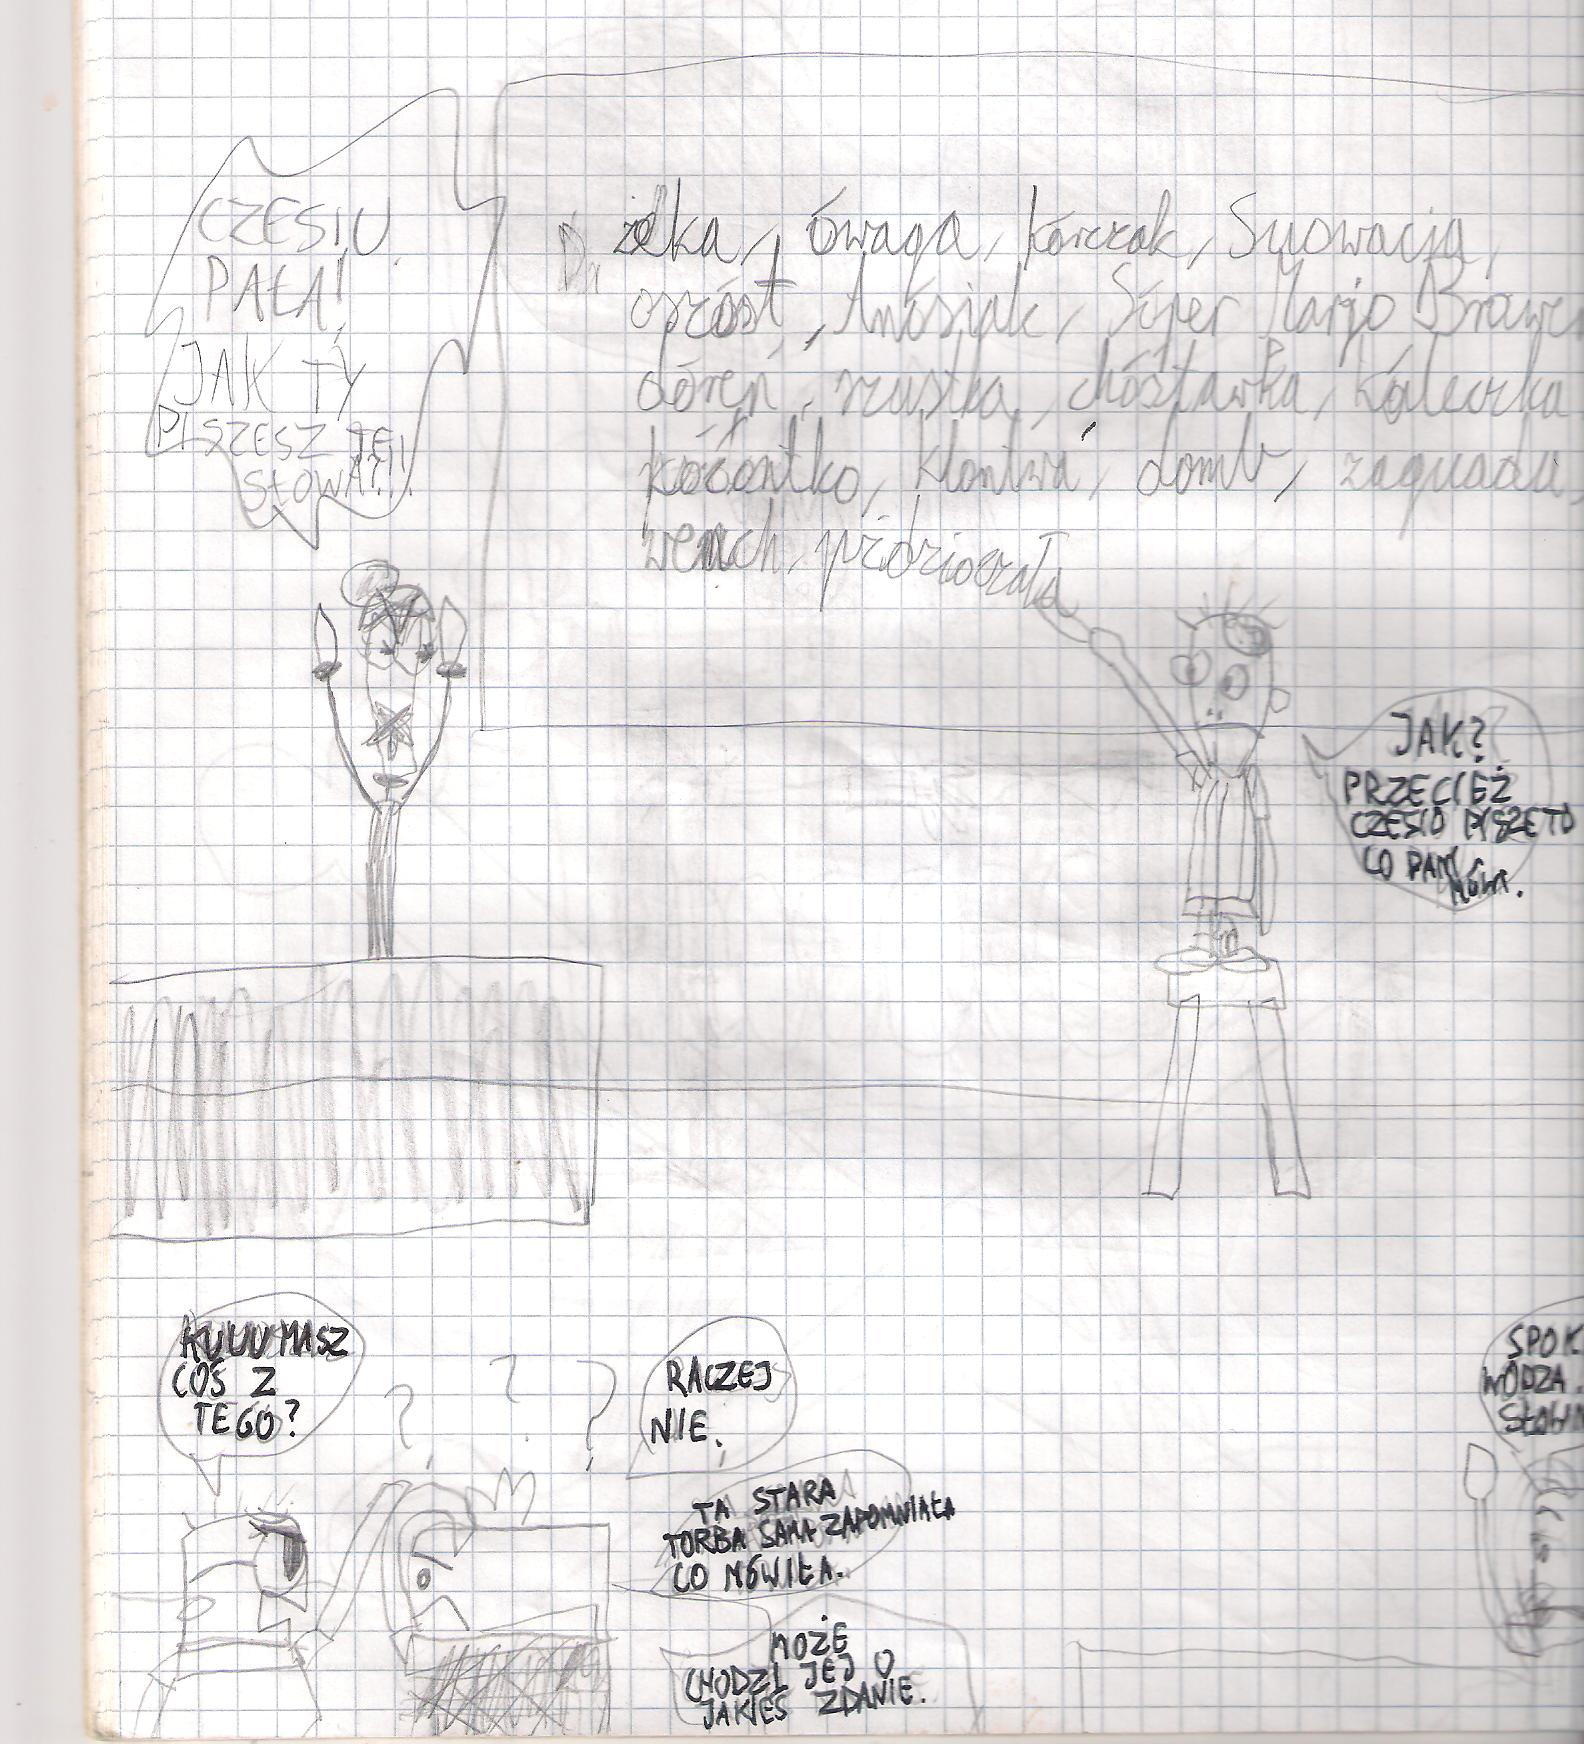 CZESIU
PAŁA!
JAK TY
PISZESZ TE
SŁOWA?!
żelka, ówaga, kórczak, Suowacja,
oszóst, Anósiak, Siper Marjo
dóreń, szustka, chóśtawka, kóleczka
kóźontko, klontwa, domb, zaguada,
wench, pździorzała
JAK?
PRZECIEŻ
CZESIO PISZE TO
CO PANI
MÓWI.
KUUUMASZ
COŚ Z
TEGO?
RACZEJ
NIE.
TA STARA
TORBA SAMA ZAPOMNIAŁA
CO MÓWIŁA.
MOŻE
CHODZI JEJ O
JAKIEŚ ZDANIE.
SPOK
WODZA.